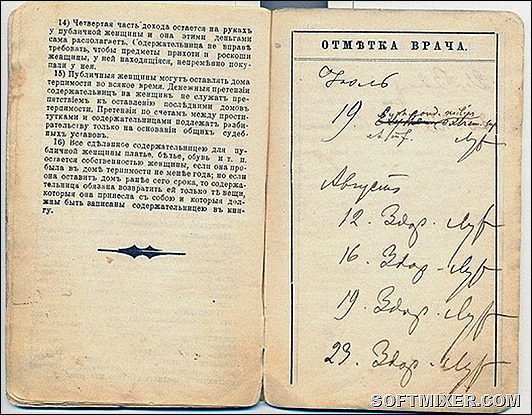 14) Четвертая часть дохода остается на руках
у публичной женщины и она этими деньгами
сама располагает. Содержательница не вправѣ
требовать, чтобы предметы прихоти и роскоши
женщины, у ней находящіяся, непремѣнно поку-
пали у нея.
15) Публичныя женщины могутъ оставлять дома
терпимости во всякое время. Денежныя претензіи
содержательницъ на женщинъ не служатъ пре-
пятствіемъ къ оставленію послѣдними домовъ
терпимости. Претензіи по счетамъ между прости-
тутками и содержательницами подлежатъ разби-
рательству только на основаніи общихъ судеб-
ныхъ уставовъ.
16) Все сдѣланное содержательницею для пу-
бличной женщины платье, бѣлье, обувь и т. п.
остается собственностью женщины, если она про-
была въ домѣ терпимости не менѣе года; но если
она оставитъ домъ ранѣе сего срока, то содержа-
тельница обязана возвратить ей только тѣ вещи,
которыя она принесла съ собою и которыя дол-
жны быть записаны содержательницею въ кни-
гу.
ОТМѢТКА ВРАЧА.
Іюль
19
Августъ
12. Здор.
16. Здор.
19. Здор.
23. Здор.
SOFTMIXER.COM